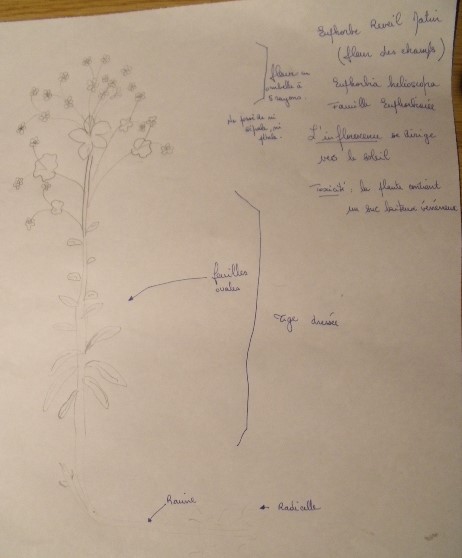 Euphorbe Réveil Matin
(fleur des champs)
Euphorbia helioscopia
Famille Euphorbiacée
L'inflorescence se dirige
vers le soleil
Toxicité, la plante contient
un suc laiteux vénéneux
fleurs en
ombelle à
5 rayons
ne possède ni
sépale, ni
pétale.
feuilles
ovales
tige dressée
Racine
Radicelle